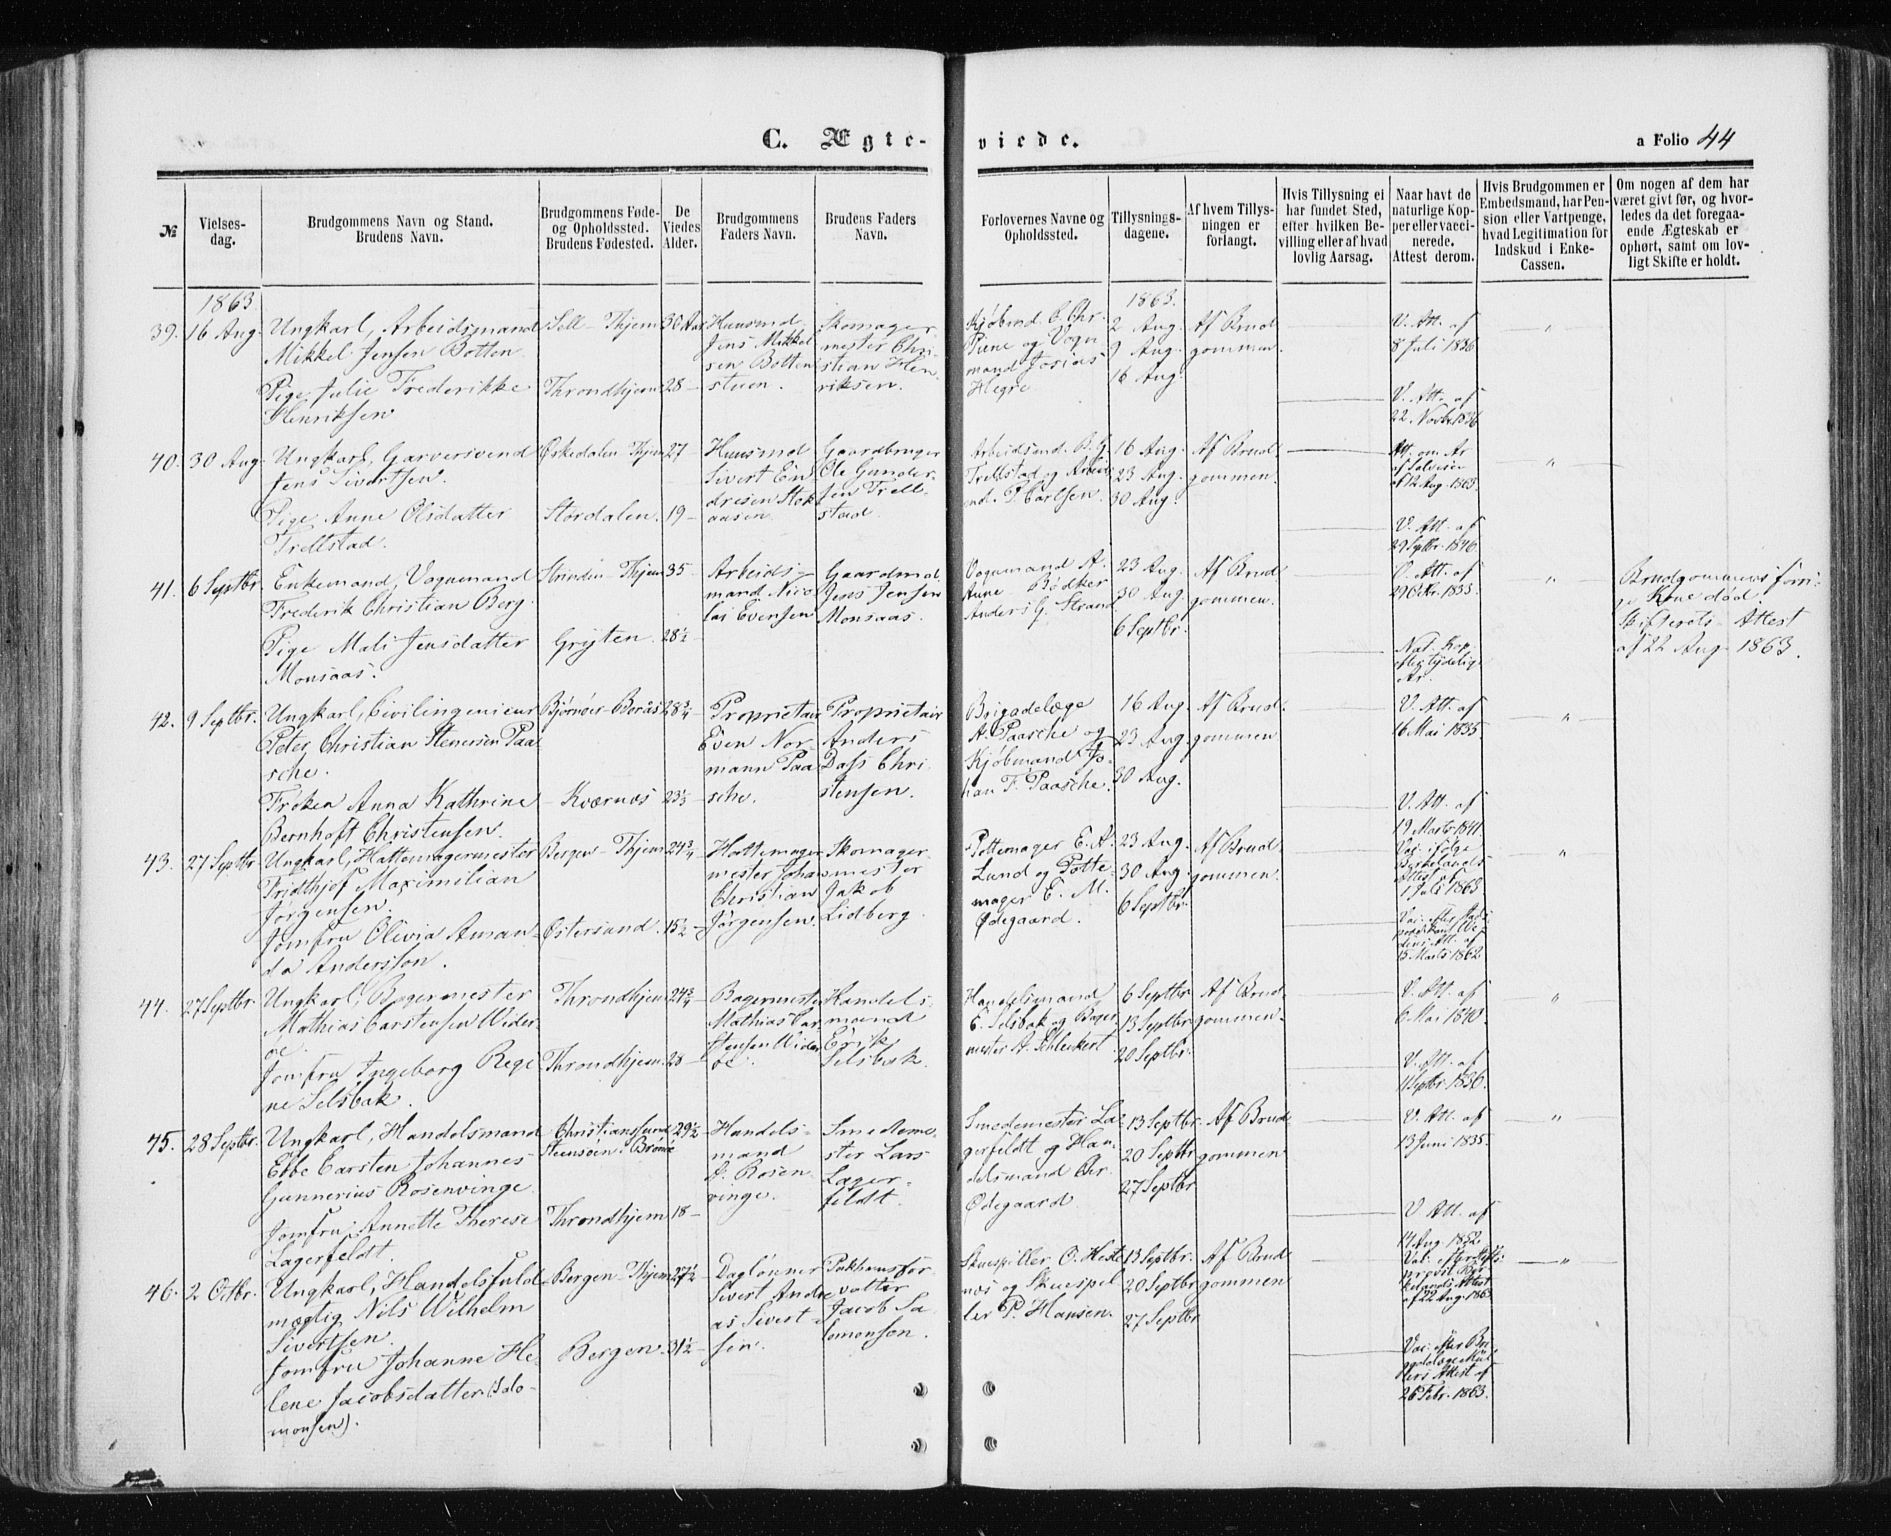 C. Ægte-
viede.
a Folio 44
№
Vielses-
dag.
Brudgommens Navn og Stand.
Brudens Navn.
Brudgommens Føde-
og Opholdssted.
Brudens Fødested.
De
Viedes
Alder.
Brudgommens
Faders Navn.
Brudens Faders
Navn.
Forlovernes Navne og
Opholdssted.
Tillysnings-
dagene.
Af hvem Tillys-
ningen er
forlangt.
Hvis Tillysning ei
har fundet Sted,
efter hvilken Be-
villing eller af hvad
lovlig Aarsag.
Naar havt de
naturlige Kop-
per eller vacci-
nerede.
Attest derom.
Hvis Brudgommen er
Embedsmand, har Pen-
sion eller Vartpenge,
hvad Legitimation for
Indskud i Enke-
Cassen.
Om nogen af dem har
været givt før, og hvor-
ledes da det foregaa-
ende Ægteskab er
ophørt, samt om lov-
ligt Skifte er holdt.
1863
39. 16 Aug.
Ungkarl, Arbeidsmand
Mikkel Jensen Botten
Pige Julie Frederikke
Henriksen
Sell - Thjem
Throndhjem
30 Aar
28 -
Huusmd
Jens Mikkel
sen Botten
stuen.
Skomager
mester Chri-
stian Hen-
riksen.
Kjøbmd. C. Chr.
Piene og Vogn
mand Josias
Hegre
1863.
2 Aug.
9 Aug.
16 Aug.
Af Brud
gommen.
V. Att. af
8 Juli 1836
V. Att. af
22 Novbr. 1836
"
40. 30 Aug.
Ungkarl, Garversvend
Jens Sivertsen.
Pige Anne Olsdatter
Trettstad.
Ørkedalen - Thjem
Størdalen.
27 -
19 -
Huusmd
Sivert En
dresen Stok
aasen
Gaardbruger
Ole Gunder
sen Trett-
stad.
Arbeidsmd. B. G.
Trettstad og Arbeids
md. P. Carlsen.
16 Aug.
23 Aug.
30 Aug.
Af Brud
gommen.
Att. om Ar
af 12 Aug. 1863.
V. Att. af
29 Septbr. 1846
"
41. 6 Septbr.
Enkemand, Vognmand
Frederik Christian Berg.
Pige Mali Jensdatter
Monsaas.
Strinden - Thjem
Gryten.
35 -
28½ -
Arbeids-
mand Nico
lai Evensen
Gaardmd.
Jens Jensen
Monsaas.
Vognmand A.
Aune - Bødker
Anders G. Strand
23 Aug.
30 Aug.
6 Septbr.
Af Brud
gommen.
V. Att. af
29 Octbr. 1833.
Nat. Kop.
efter tydelig
Ar.
"
Brudgommens forri-
ge Kone død.
Skifterets-Attest
af 22 Aug. 1863.
42. 9 Septbr.
Ungkarl, Civilingenieur
Peter Christian Stenersen Paa
sche.
Frøken Anna Kathrine
Bernhoft Christensen.
Bjørnøer - Borås
- Kværnæs
28¾
23⅓ -
Proprietair
Even Nor-
mann Paa
sche.
Proprietair
Anders
Dass Chri
stensen.
Brigadelæge
A. Paasche og
Kjøbmand Jo-
han F. Paasche.
16 Aug.
23 Aug.
30 Aug.
Af Brud
gommen
V. Att. af
16 Mai 1835
V. Att. af
19 Marts 1841
"
43. 27 Septbr.
Ungkarl, Hattemagermester
Fridthjof Maximilian
Jørgensen.
Jomfru Olivia Aman-
da Andersson.
Bergen - Thjem
Østersund.
24¾
15½ -
Hattemager
mester Johan
Christian
Jørgensen.
Skomager-
mester
Jakob
Lidberg
Pottemager E. A.
Lund og Potte-
mager E. M.
Ødegaard.
23 Aug.
30 Aug.
6 Septbr.
Af Brud
gommen.
Vac. ifølge
Birkelands
Attest af
1 Juli 1863.
15 Marts 1862
"
44. 27 Septbr.
Ungkarl, Bagermester
Mathias Carstensen Wider-
øe
Jomfru Ingeborg Regi
ne Selsbak.
Throndhjem
Throndhjem.
24¾
28 -
Bagermester
Mathias Car
stensen Wider
øe.
Handels
mand
Erik
Selsbak.
Handelsmand
E. Selsbak og Bager
mester A. Schleckert
6 Septbr
13 Septbr.
20 Septbr.
Af Brud
gommen.
V. Att. af
6 Mai 1840.
V. Att. af
11 Septbr. 1836.
"
45. 28 Septbr.
Ungkarl, Handelsmand
Ebbe Carsten Johannes
Gunnerius Rosenvinge
Jomfru Annette Therese
Lagerfeldt.
Christianssund
Steensøen. Brønø
Throndhjem
29½
18 -
Handels-
mand
A. Rosen
vinge.
Smedeme-
ster Lars
Lager-
feldt.
Smedemester La-
gerfeldt og Han-
delsmand Chr.
Ødegaard
13 Septbr.
20 Septbr
27 Septbr
Af Brud
gommen
V. Att. af
13 Juni 1835.
V. Att. af
14 Aug. 1852.
"
46. 2 Octbr.
Ungkarl, Handelsfuld
mægtig Nils Wilhelm
Sivertsen.
Jomfru Johanne He-
lene Jacobsdatter (Salo-
monsen).
Bergen - Thjem
Bergen.
27½
31½ -
Daglønner
Sivert Andre
as Sivert-
sen.
Pakhuusfor
valter
Jacob Sa
lomonson.
Skuespiller O. Heste
næs og Skuespil
ler P. Hansen.
13 Septbr.
20 Septbr
27 Septbr
Af Brud
gommen
Vac. efter Stifts
provst Bir
kelands Attest
af 22 Aug. 1863
Vac. efter Bri
gadelæge Mül
lers Attest af
26 Febr. 1863.
"